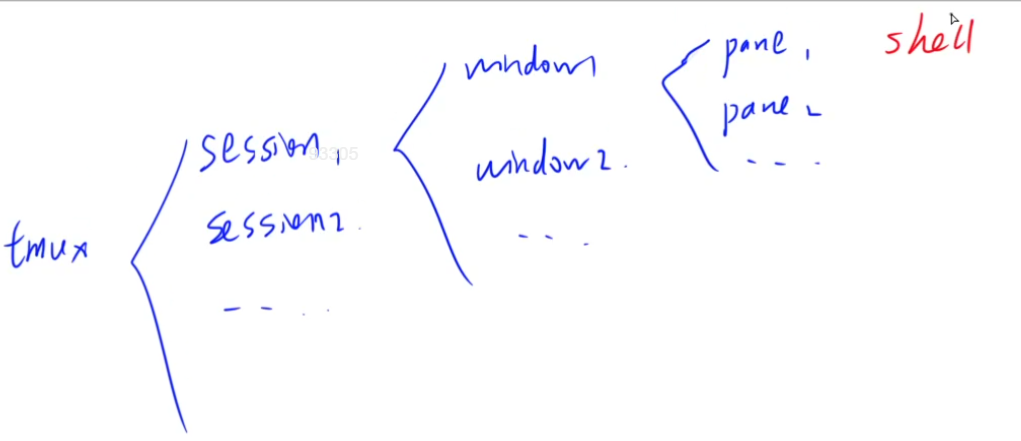 tmux
session1
session2
....
window1
window2.
...
pane1
pane2
...
shell
93305